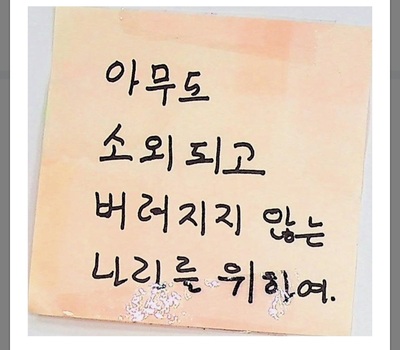 아무도
소외되고
버려지지 않는
나라를 위하여.